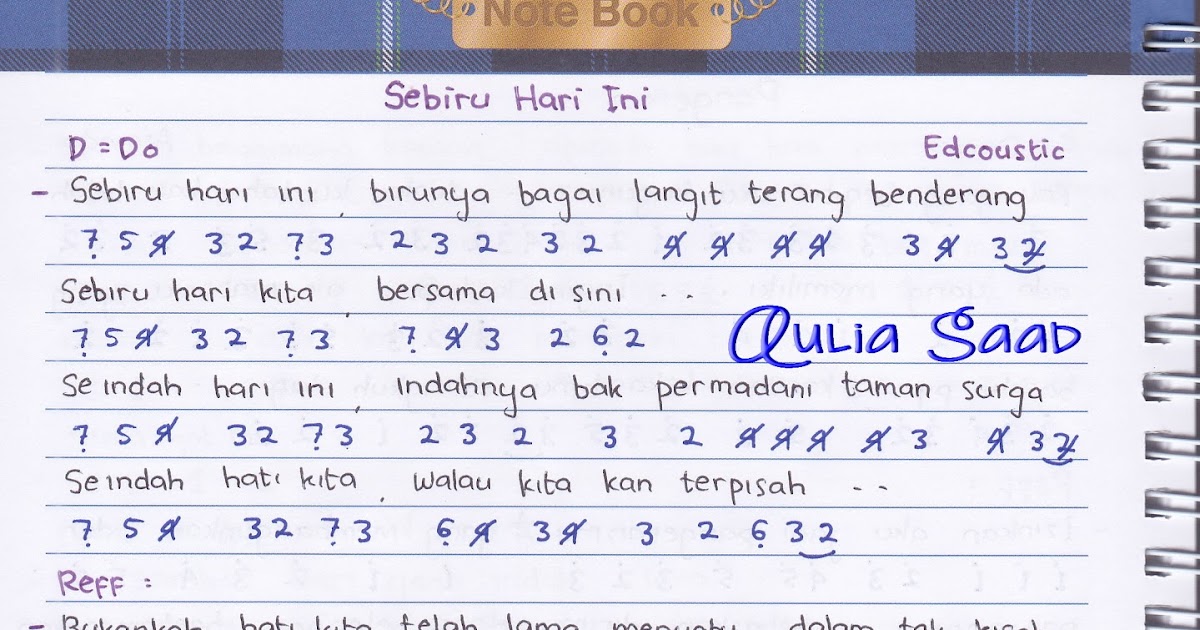 Note Book
Sebiru Hari Ini
D = Do Edcoustic
- Sebiru hari ini, birunya bagai langit terang benderang
7̣ 5 4̸ 3 2 7̣ 3 2 3 2 3 2 4̸ 4̸ 4̸ 4̸ 3 4̸ 3 2̸
Sebiru hari kita, bersama di sini ...
7̣ 5 4̸ 3 2 7̣ 3 7̣ 4̸ 3 2 6̣ 2
Qulia Saad
Seindah hari ini, indahnya bak permadani taman surga
7̣ 5 4̸ 3 2 7̣ 3 2 3 2 3 2 4̸ 4̸ 4̸ 4̸ 3 4̸ 3 2̸
Seindah hati kita, walau kita kan terpisah ...
7̣ 5 4̸ 3 2 7̣ 3 6̣ 4̸ 3 4̸ 3 2 6̣ 3 2
Reff :
- Bukankah hati kita telah lama menyatu dalam